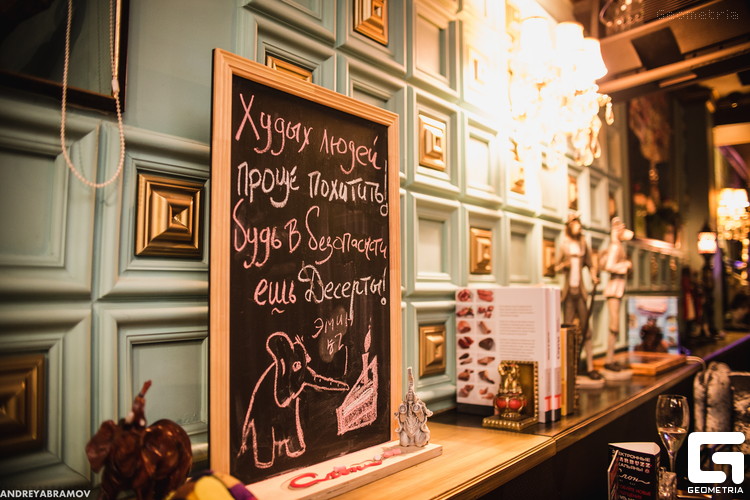 Geometria
Худых людей
проще похитить!
будь в безопасности
ешь Десерты!
Эмин
ANDREYABRAMOV
GEOMETRIA